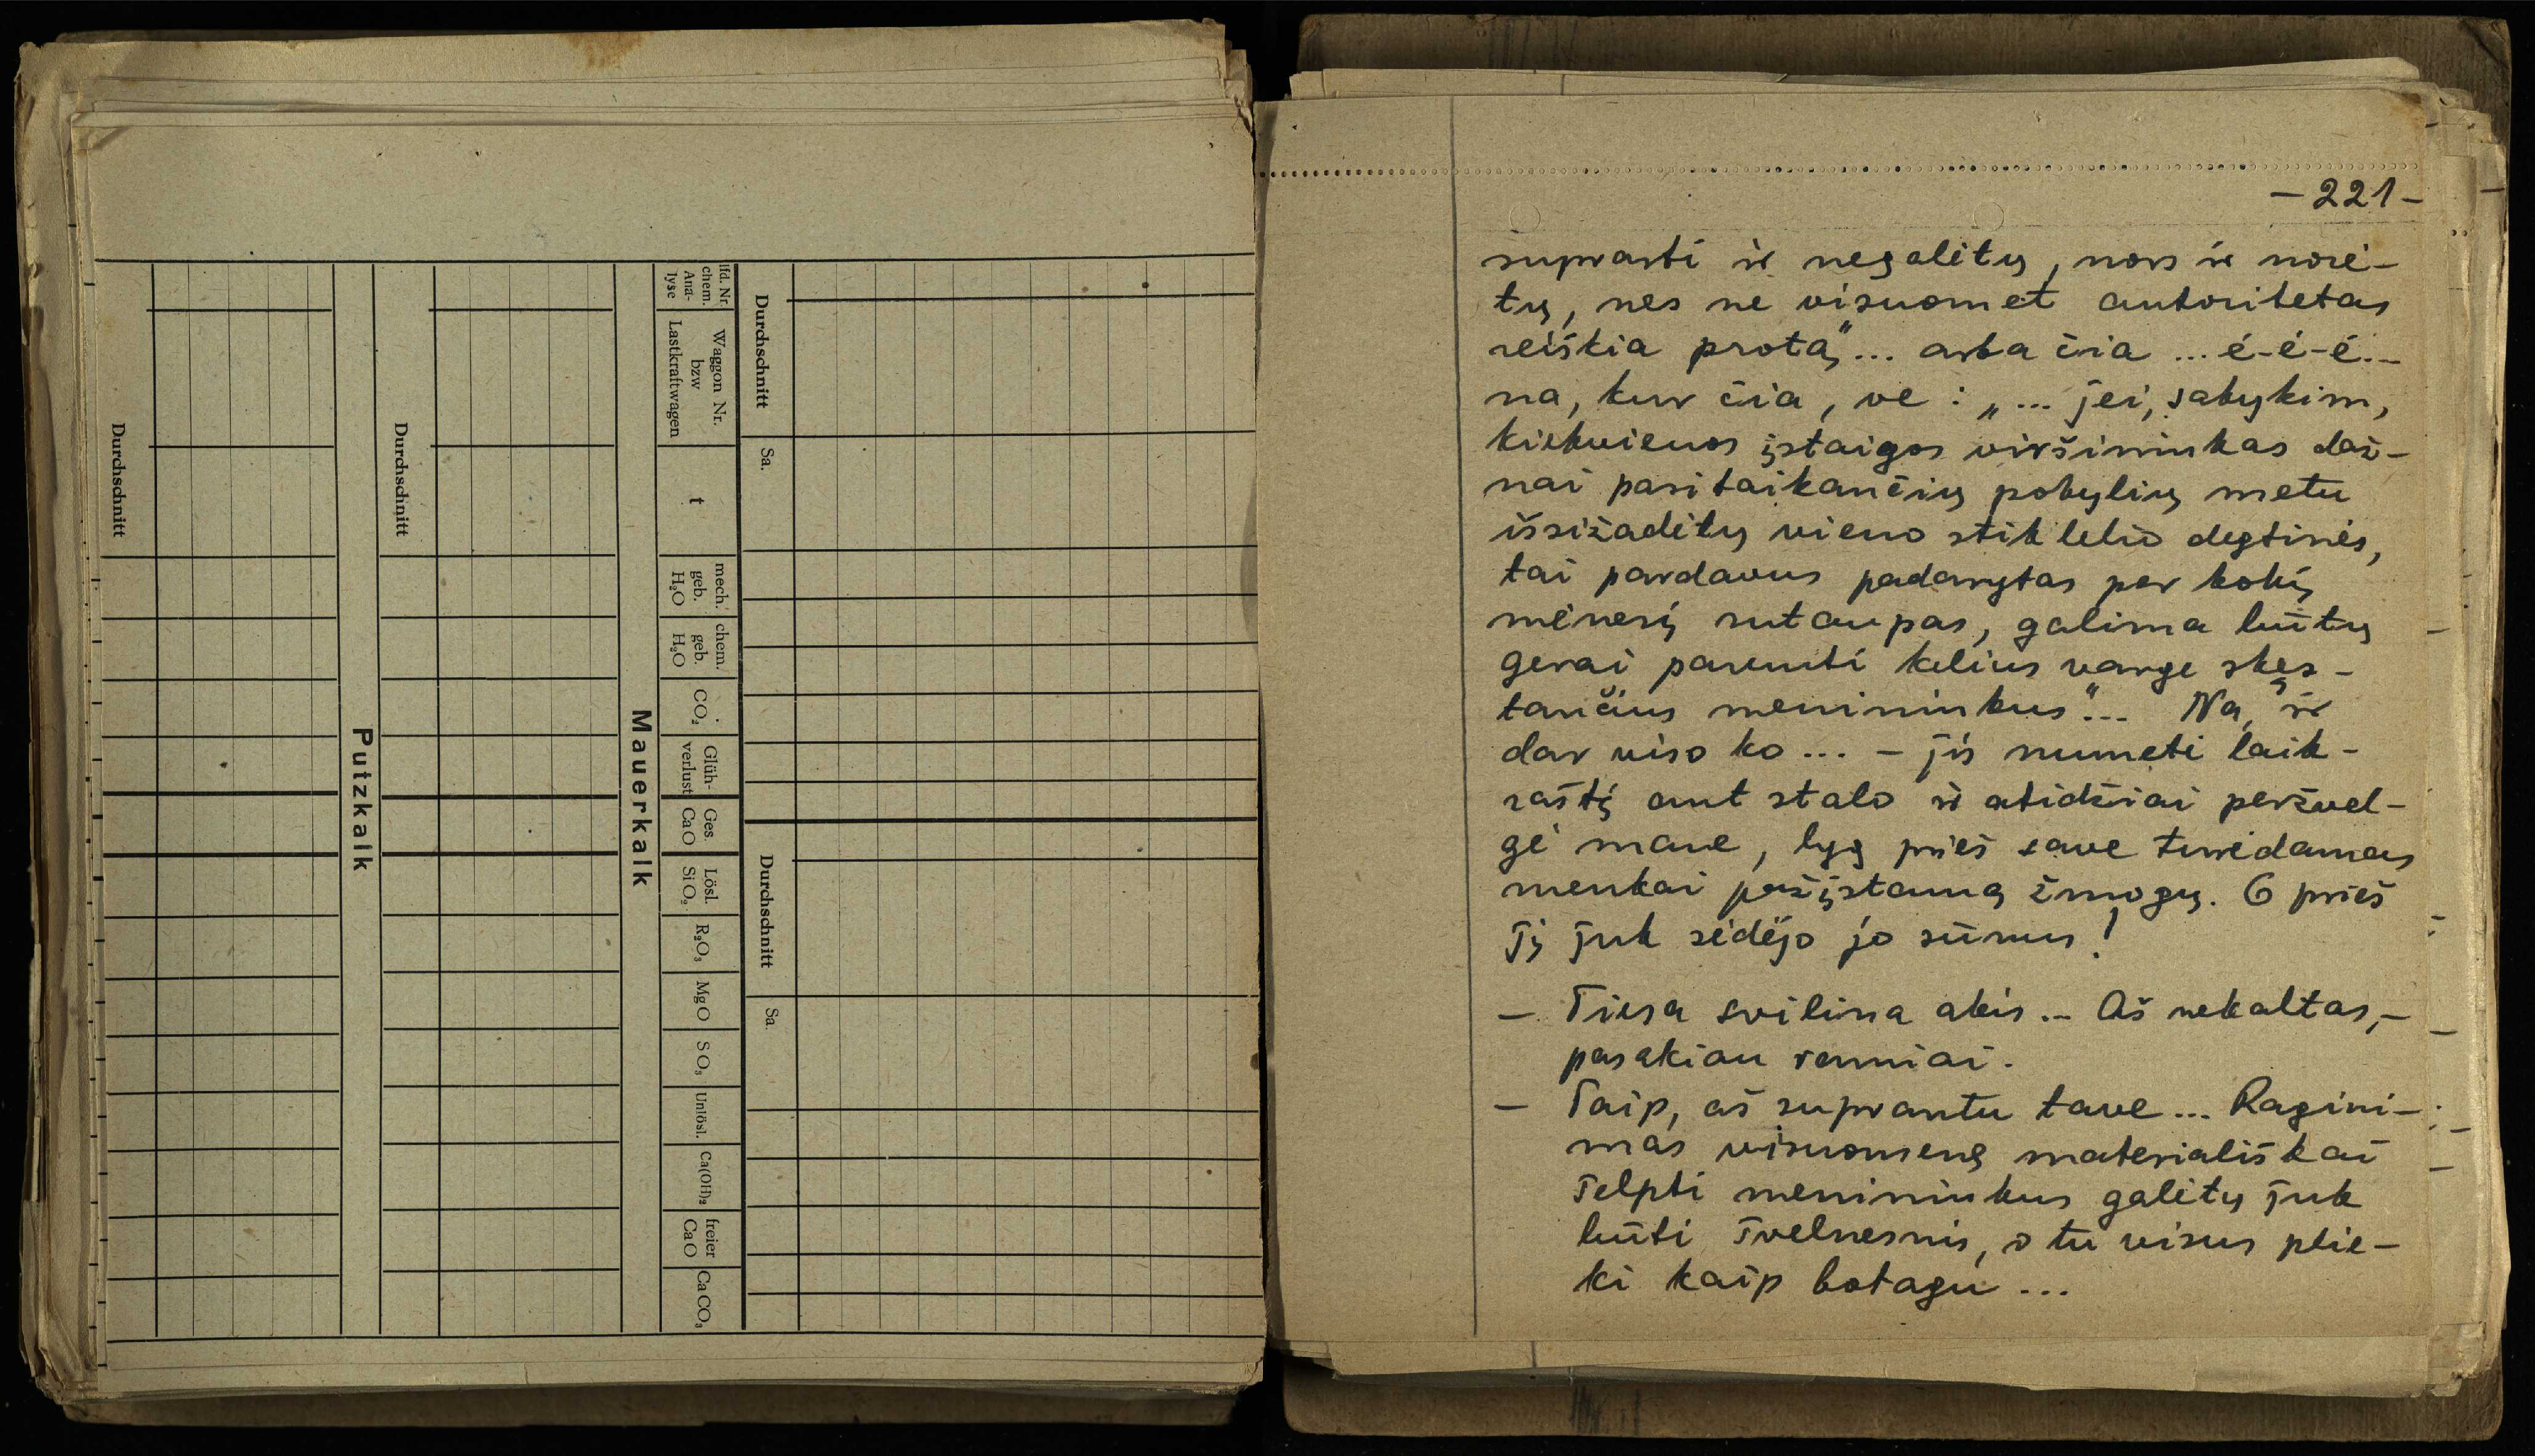 Durchschnitt
Putzkalk
Durchschnitt
Mauerkalk
lfd. Nr. chem. Ana-lyse
Wagon Nr. bzw Lastkraftwagen
t
mech. geb. H₂O
chem. geb. H₂O
CO₂
Glüh-verlust
Ges. CaO
Lösl. SiO₂
R₂O₃
MgO
SO₃
Unlösl.
Ca(OH)₂
freier CaO
CaCO₃
Durchschnitt
Sa.
Durchschnitt
Sa.
-221-
suprasti ir negalėtų, nors ir norė-
tų, nes ne visuomet autoritetas
reiškia protą"... arba čia ... é-é-é...
na, kur čia, ve: „... jei, sakykim,
kiekvienos įstaigos viršininkas daž-
nai pasitaikančių pobylių metu
išsižadėtų vieno stiklelio degtinės,
tai pardavus padarytas per kokį
mėnesį sutaupas, galima būtų
gerai paremti kelius varge skęs-
tančius menininkus"... Na, ir
dar viso ko... - jis numetė laik-
raštį ant stalo ir atidžiai peržvel-
gė mane, lyg prieš save turėdamas
menkai pažįstamą žmogų. O prieš
jį juk sėdėjo jo sūnus!
- Tiesa svilina akis... Aš nekaltas,-
pasakiau ramiai.
- Taip, aš suprantu tave... Ragini-
mas visuomenę materiališkai
šelpti menininkus galėtų juk
būti švelnesnis, o tu visus plie-
ki kaip botagu...